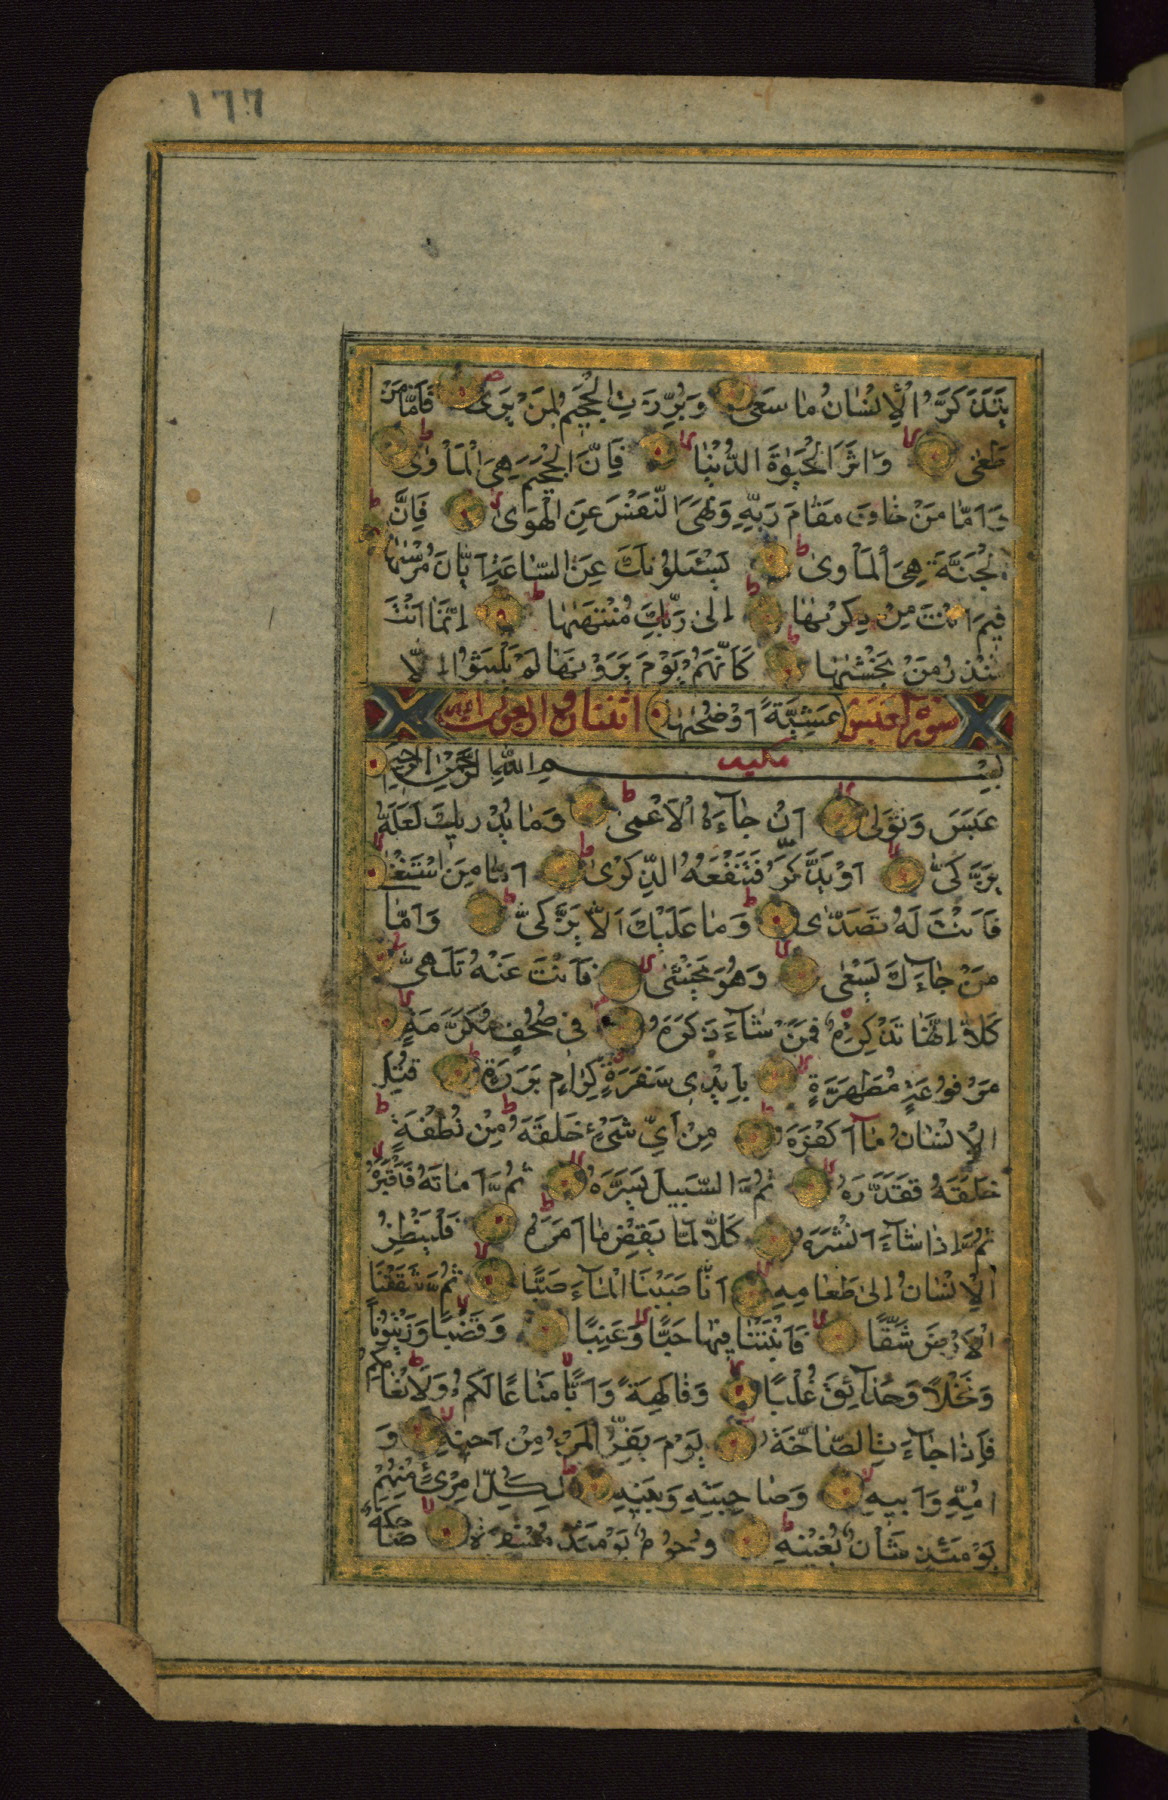 ١٦٦
يَتَذَكَّرُ الْاِنْسَانُ مَا سَعٰى وَبُرِّزَتِ الْجَحٖيمُ لِمَنْ يَرٰى فَاَمَّا مَنْ
طَغٰى وَاٰثَرَ الْحَيٰوةَ الدُّنْيَا فَاِنَّ الْجَحٖيمَ هِىَ الْمَأْوٰى
وَاَمَّا مَنْ خَافَ مَقَامَ رَبِّهٖ وَنَهَى النَّفْسَ عَنِ الْهَوٰى فَاِنَّ
الْجَنَّةَ هِىَ الْمَأْوٰى يَسْـَٔلُونَكَ عَنِ السَّاعَةِ اَيَّانَ مُرْسٰيهَا
فٖيمَ اَنْتَ مِنْ ذِكْرٰيهَا اِلٰى رَبِّكَ مُنْتَهٰيهَا اِنَّمَا اَنْتَ
مُنْذِرُ مَنْ يَخْشٰيهَا كَاَنَّهُمْ يَوْمَ يَرَوْنَهَا لَمْ يَلْبَثُوا اِلَّا
سورة عبس عَشِيَّةً اَوْ ضُحٰيهَا اثنتان واربعون
مكية
بِسْمِ اللّٰهِ الرَّحْمٰنِ الرَّحٖيمِ
عَبَسَ وَتَوَلّٰى اَنْ جَاءَهُ الْاَعْمٰى وَمَا يُدْرٖيكَ لَعَلَّهُ
يَزَّكّٰى اَوْ يَذَّكَّرُ فَتَنْفَعَهُ الذِّكْرٰى اَمَّا مَنِ اسْتَغْنٰى
فَاَنْتَ لَهُ تَصَدّٰى وَمَا عَلَيْكَ اَلَّا يَزَّكّٰى وَاَمَّا
مَنْ جَاءَكَ يَسْعٰى وَهُوَ يَخْشٰى فَاَنْتَ عَنْهُ تَلَهّٰى
كَلَّا اِنَّهَا تَذْكِرَةٌ فَمَنْ شَاءَ ذَكَرَهُ فٖى صُحُفٍ مُكَرَّمَةٍ
مَرْفُوعَةٍ مُطَهَّرَةٍ بِاَيْدٖى سَفَرَةٍ كِرَامٍ بَرَرَةٍ قُتِلَ
الْاِنْسَانُ مَا اَكْفَرَهُ مِنْ اَىِّ شَىْءٍ خَلَقَهُ مِنْ نُطْفَةٍ
خَلَقَهُ فَقَدَّرَهُ ثُمَّ السَّبٖيلَ يَسَّرَهُ ثُمَّ اَمَاتَهُ فَاَقْبَرَهُ
ثُمَّ اِذَا شَاءَ اَنْشَرَهُ كَلَّا لَمَّا يَقْضِ مَا اَمَرَهُ فَلْيَنْظُرِ
الْاِنْسَانُ اِلٰى طَعَامِهٖ اَنَّا صَبَبْنَا الْمَاءَ صَبًّا ثُمَّ شَقَقْنَا
الْاَرْضَ شَقًّا فَاَنْبَتْنَا فٖيهَا حَبًّا وَعِنَبًا وَقَضْبًا وَزَيْتُونًا
وَنَخْلًا وَحَدَائِقَ غُلْبًا وَفَاكِهَةً وَاَبًّا مَتَاعًا لَكُمْ وَلِاَنْعَامِكُمْ
فَاِذَا جَاءَتِ الصَّاخَّةُ يَوْمَ يَفِرُّ الْمَرْءُ مِنْ اَخٖيهِ وَ
اُمِّهٖ وَاَبٖيهِ وَصَاحِبَتِهٖ وَبَنٖيهِ لِكُلِّ امْرِئٍ مِنْهُمْ
يَوْمَئِذٍ شَأْنٌ يُغْنٖيهِ وُجُوهٌ يَوْمَئِذٍ مُسْفِرَةٌ ضَاحِكَةٌ